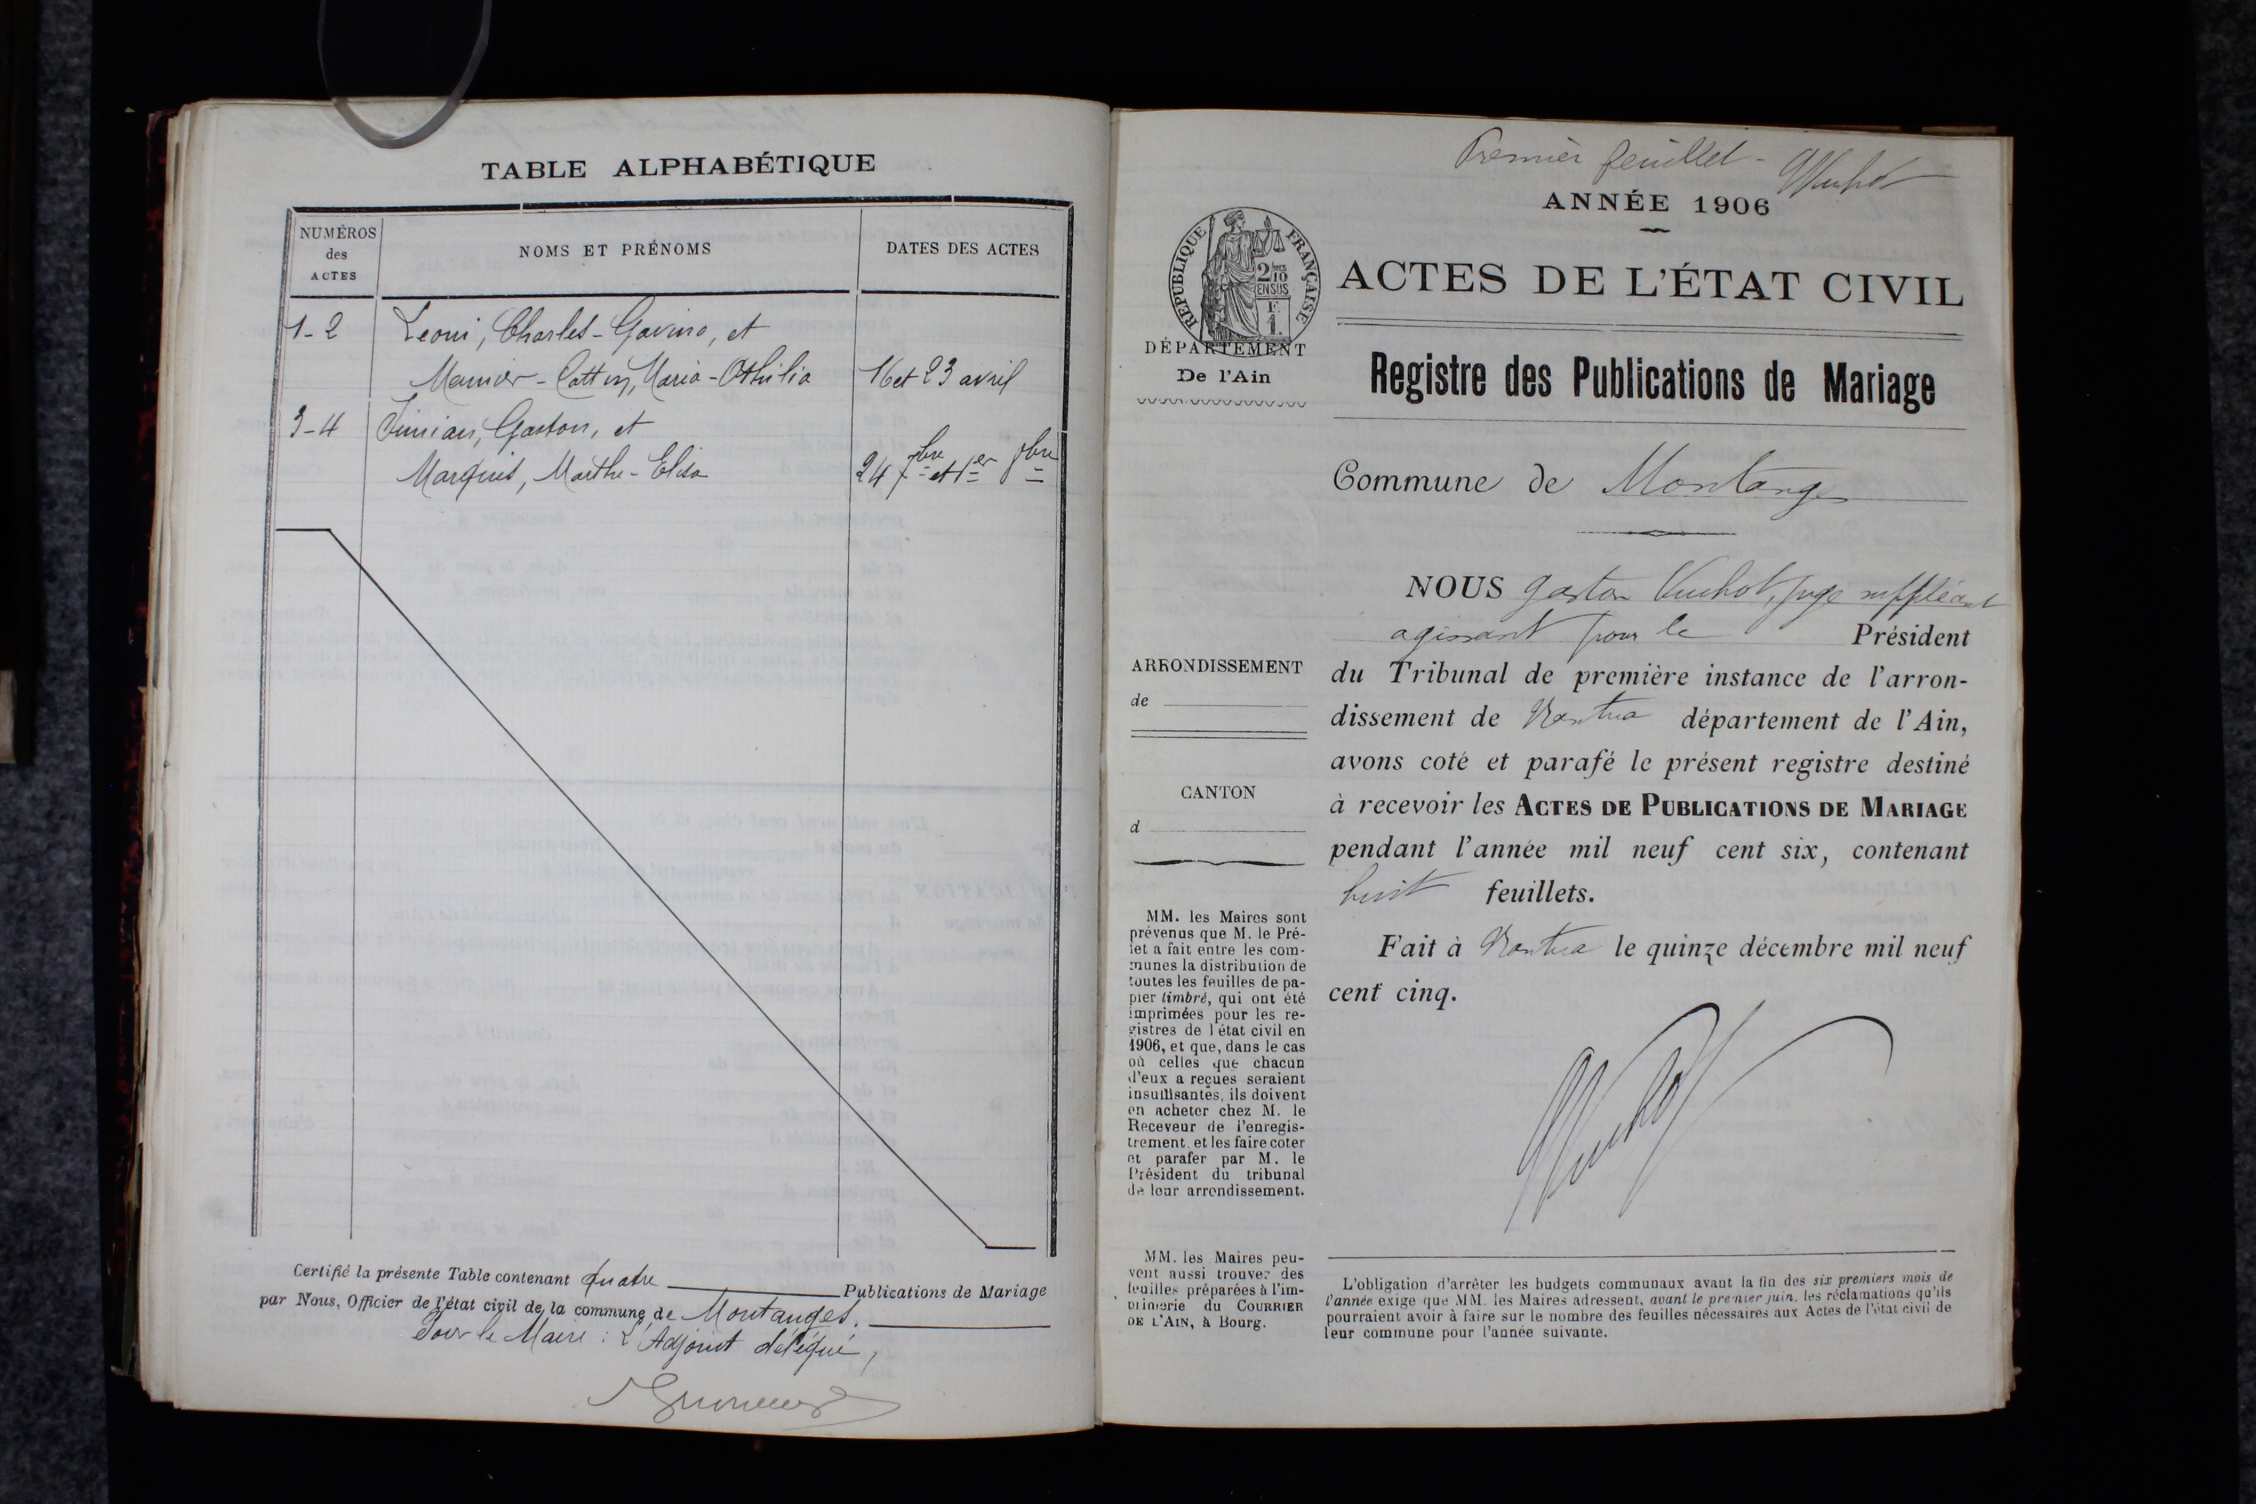 TABLE ALPHABÉTIQUE
NUMÉROS
des
ACTES
NOMS ET PRÉNOMS
DATES DES ACTES
1-2
Leoni, Charles-Gavino, et
Mermier-Cottin, Maria-Othilia
16 et 23 avril
3-4
Simian, Gaston, et
Marquis, Marthe-Elisa
24 7bre et 1er 8bre
Certifié la présente Table contenant quatre Publications de Mariage
par Nous, Officier de l'état civil de la commune de Montanges.
Pour le Maire : L'Adjoint délégué,
Premier feuillet - GVuchot
ANNÉE 1906
RÉPUBLIQUE FRANÇAISE
2/10
EN SUS
F.
1.
DÉPARTEMENT
De l'Ain
ACTES DE L'ÉTAT CIVIL
Registre des Publications de Mariage
Commune de Montanges
NOUS Gaston Vuchot, juge suppléant
agissant pour le Président
du Tribunal de première instance de l'arron-
dissement de Nantua département de l'Ain,
avons coté et parafé le présent registre destiné
à recevoir les ACTES DE PUBLICATIONS DE MARIAGE
pendant l'année mil neuf cent six, contenant
huit feuillets.
Fait à Nantua le quinze décembre mil neuf
cent cinq.
GVuchot
ARRONDISSEMENT
de
CANTON
d
MM. les Maires sont
prévenus que M. le Pré-
fet a fait entre les com-
munes la distribution de
toutes les feuilles de pa-
pier timbré, qui ont été
imprimées pour les re-
gistres de l'état civil en
1906, et que, dans le cas
où celles que chacun
d'eux a reçues seraient
insuffisantes, ils doivent
en acheter chez M. le
Receveur de l'enregis-
trement, et les faire coter
et parafer par M. le
Président du tribunal
de leur arrondissement.
MM. les Maires peu-
vent aussi trouver des
feuilles préparées à l'im-
primerie du COURRIER
DE L'AIN, à Bourg.
L'obligation d'arrêter les budgets communaux avant la fin des six premiers mois de
l'année exige que MM. les Maires adressent, avant le premier juin, les réclamations qu'ils
pourraient avoir à faire sur le nombre des feuilles nécessaires aux Actes de l'état civil de
leur commune pour l'année suivante.